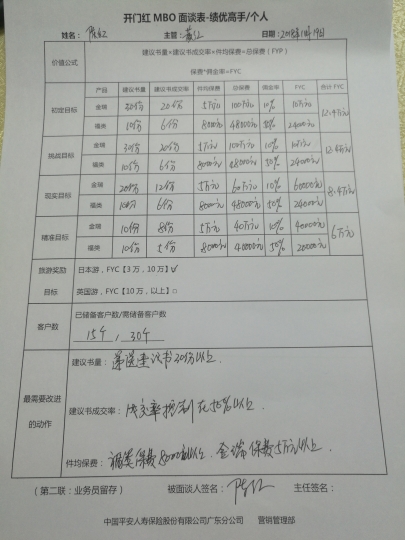 开门红 MBO 面谈表-绩优高手/个人
姓名： 主管： 日期：
价值公式 建议书量×建议书成交率×件均保费=总保费（FYP）
保费*佣金率=FYC
产品 建议书量 建议书成交 件均保费 总保费 佣金率 FYC 合计 FYC
初定目标 金瑞 30份 20份 5万元 100万元 10% 10万元 12.4万元
福类 10份 6份 8000元 48000元 50% 24000元
挑战目标 金瑞 30份 20份 5万元 100万元 10% 10万元 12.4万元
福类 10份 6份 8000元 48000元 50% 24000元
现实目标 金瑞 20份 12份 5万元 60万元 10% 60000元 8.4万元
福类 10份 6份 8000元 48000元 50% 24000元
精准目标 金瑞 10份 8份 5万元 40万元 10% 40000元 6万元
福类 10份 5份 8000元 40000元 50% 20000元
旅游奖励 日本游，FYC【3万，10万】☑
目标 英国游，FYC【10万，以上】□
客户数 已储备客户数/需储备客户数
15个，30个
最需要改进的动作 建议书量：递送建议书30份以上.
建议书成交率：成交率 在50%以上.
件均保费：福类保费8000元以上. 金瑞保费5万元以上.
（第二联：业务员留存） 被面谈人签名： 主任签名：
中国平安人寿保险股份有限公司广东分公司 营销管理部